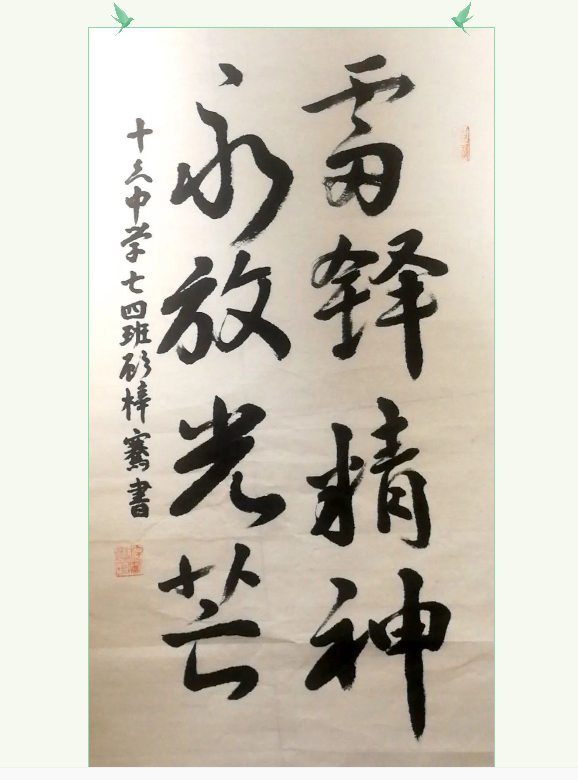 雷锋精神
永放光芒
十六中学七四班顾梓骞書